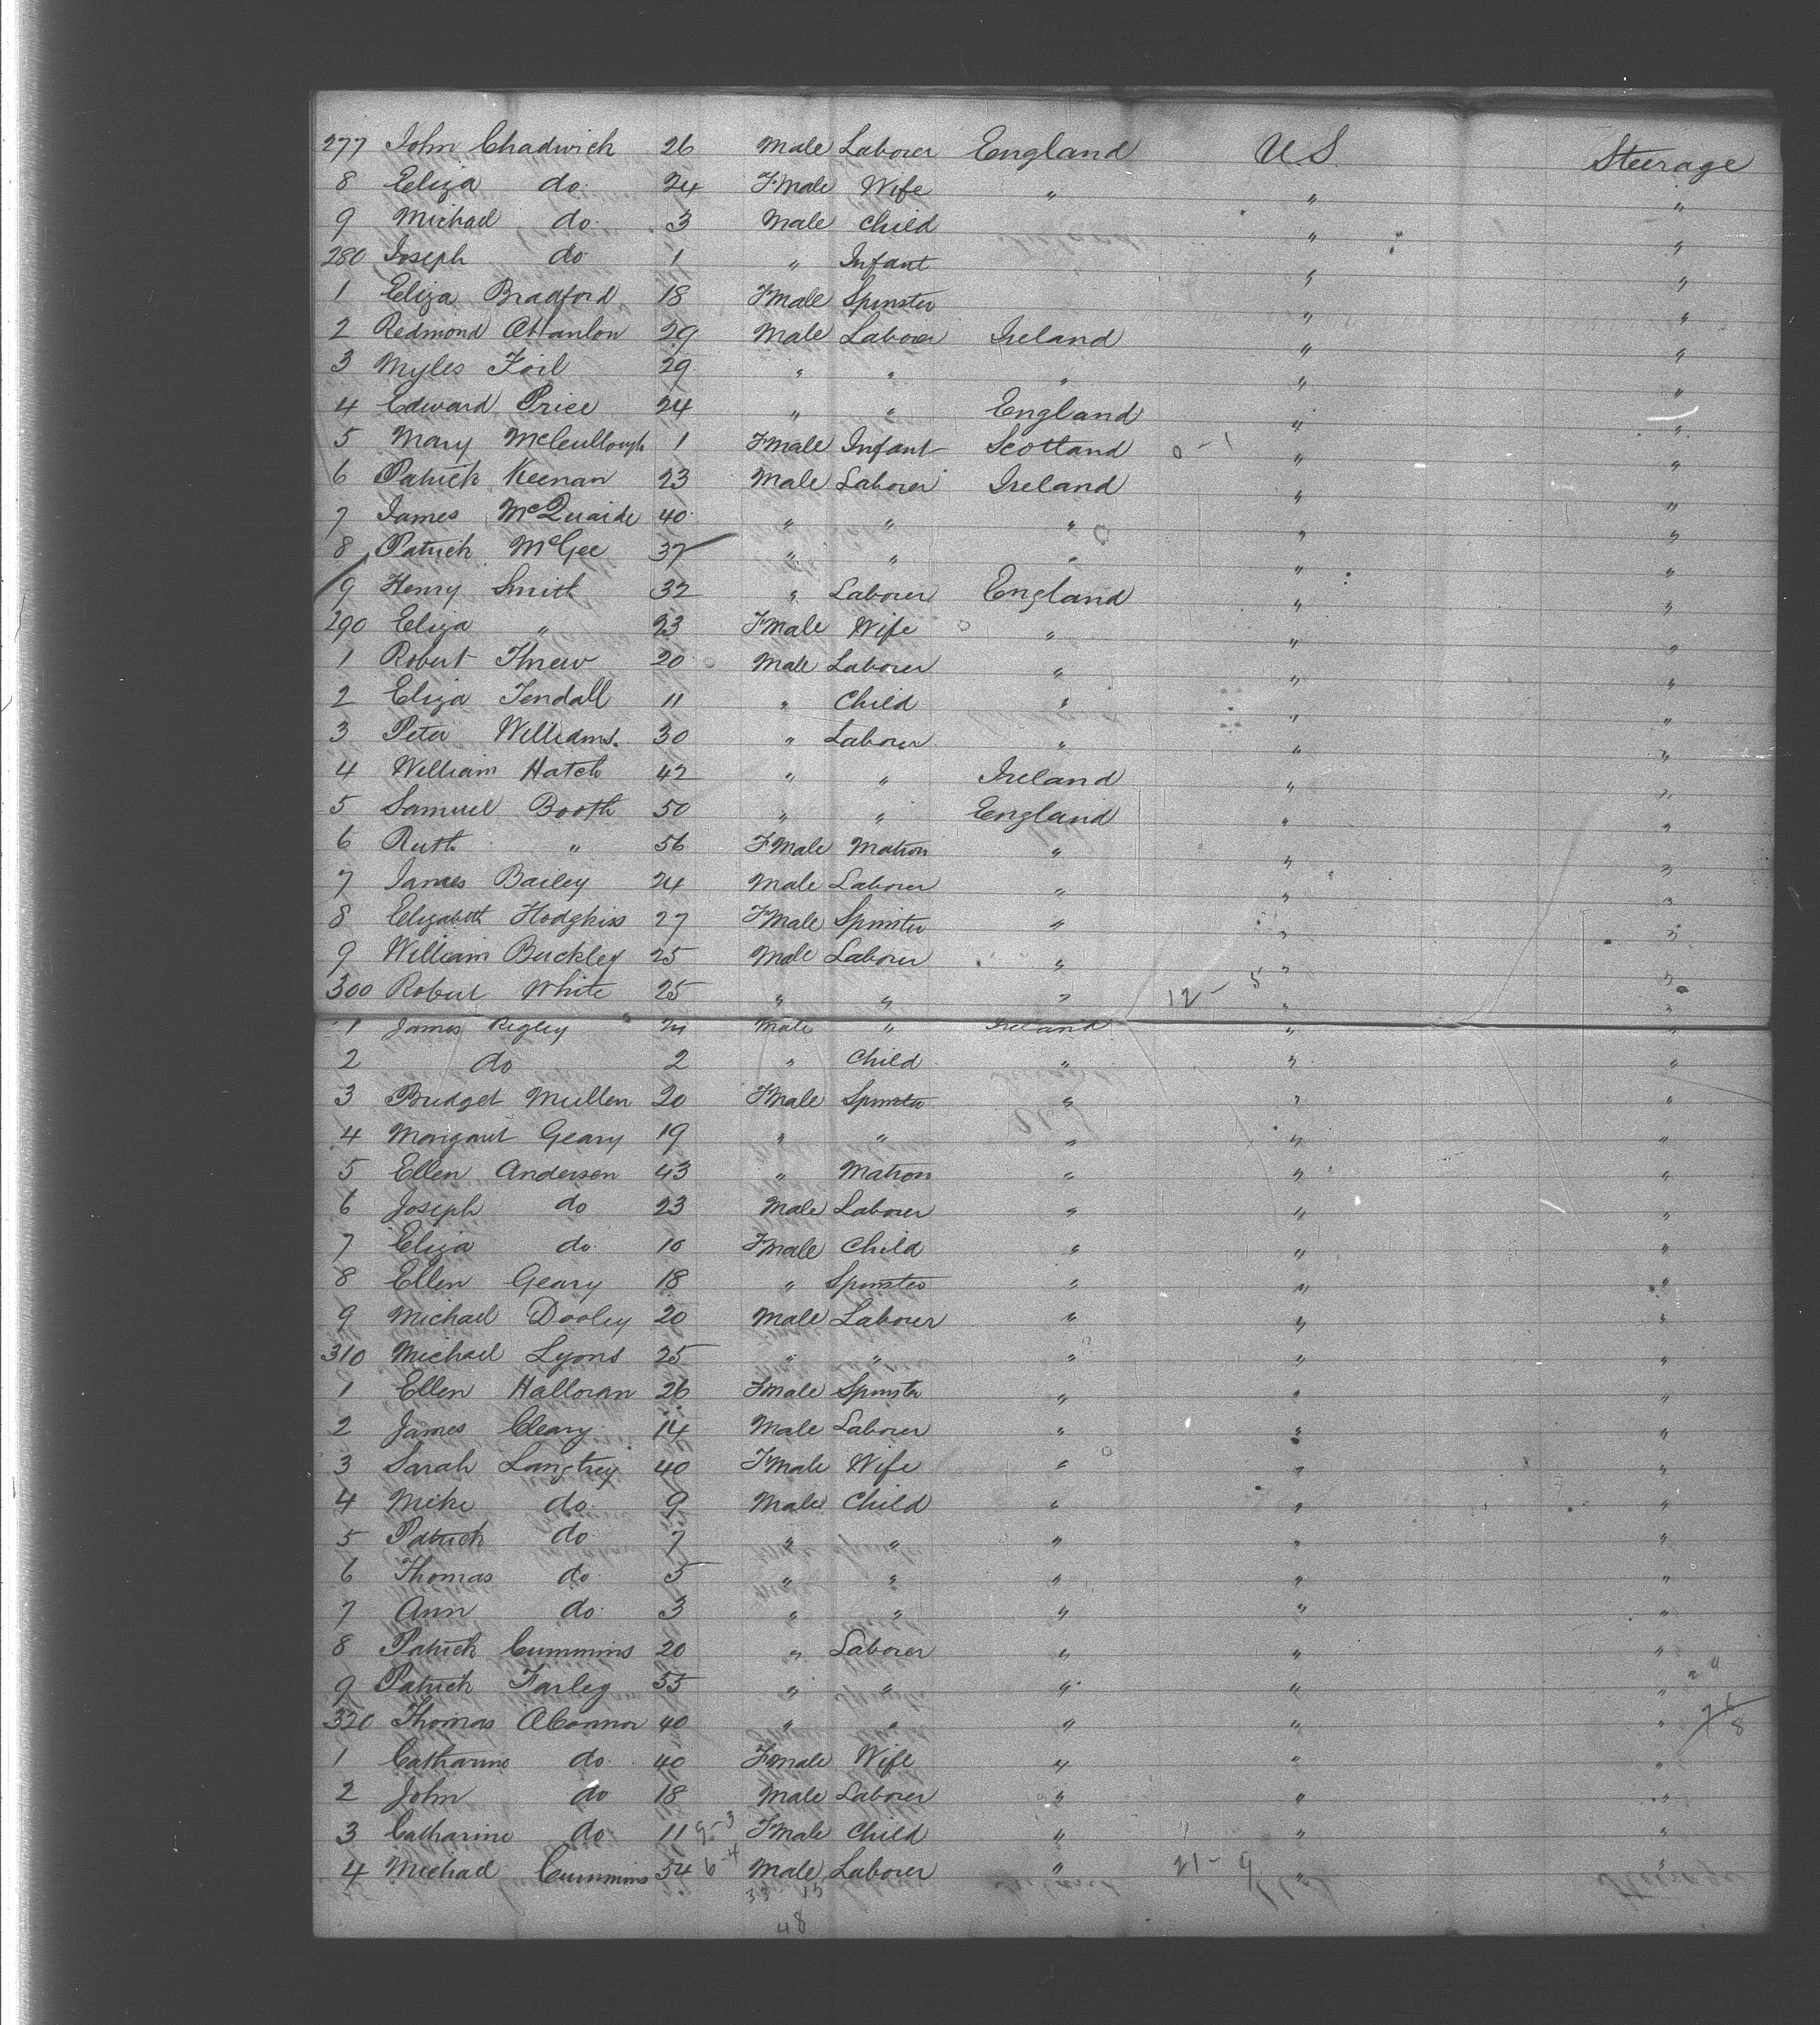 277 John Chadwick 26 Male Laborer England US Steerage
8 Eliza do. 24 Fmale Wife " " "
9 Michael do. 3 Male Child " "
280 Joseph do 1 " Infant " "
1 Eliza Bradford 18 Fmale Spinster " "
2 Redmond OHanlon 29 Male Laborer Ireland " "
3 Myles Foil 29 " " " " "
4 Edward Price 24 " " England " "
5 Mary McCullough 1 Fmale Infant Scotland 0 - 1 " "
6 Patrick Keenan 23 Male Laborer Ireland " "
7 James McQuaide 40 " " " " "
8 Patrick McGee 37 " " " " "
9 Henry Smith 32 " Laborer England " "
290 Eliza " 23 Fmale Wife " " "
1 Robert Threw 20 Male Laborer " " "
2 Eliza Tendall 11 " Child " " "
3 Peter Williams. 30 " Laborer " " "
4 William Hatch 42 " " Ireland " "
5 Samuel Booth 50 " " England " "
6 Ruth " 56 Fmale Matron " " "
7 James Bailey 24 Male Laborer " " "
8 Elizabeth Hodgkiss 27 Fmale Spinster " " "
9 William Buckley 25 Male Laborer " " "
300 Robert White 25 " " " 12 - 5 " "
1 James Regley Male " Ireland " "
2 do 2 " Child " " "
3 Bridget Mullen 20 Fmale Spinster " " "
4 Margaret Geary 19 " " " " "
5 Ellen Andersen 43 " Matron " " "
6 Joseph do 23 Male Laborer " " "
7 Eliza do. 10 Fmale Child " " "
8 Ellen Geary 18 " Spinster " " "
9 Michael Dooley 20 Male Laborer " " "
310 Michael Lyons 25 " " " " "
1 Ellen Halloran 26 Fmale Spinster " " "
2 James Cleary 14 Male Laborer " " "
3 Sarah Langtrey 40 Fmale Wife " " "
4 Mike do. 9 Male Child " " "
5 Patrick do. 7 " " " " "
6 Thomas do. 5 " " " " "
7 Ann do. 3 " " " " "
8 Patrick Cummins 20 " Laborer " " "
9 Patrick Farley 55 " " " " "
320 Thomas OConnor 40 " " " " "
1 Catharine do. 40 Fmale Wife " " "
2 John do 18 Male Laborer " " "
3 Catharine do 11 9-3 Fmale Child " " "
4 Michael Cummins 54 6-4 Male Laborer " 21 - 9 " "
33 15
48